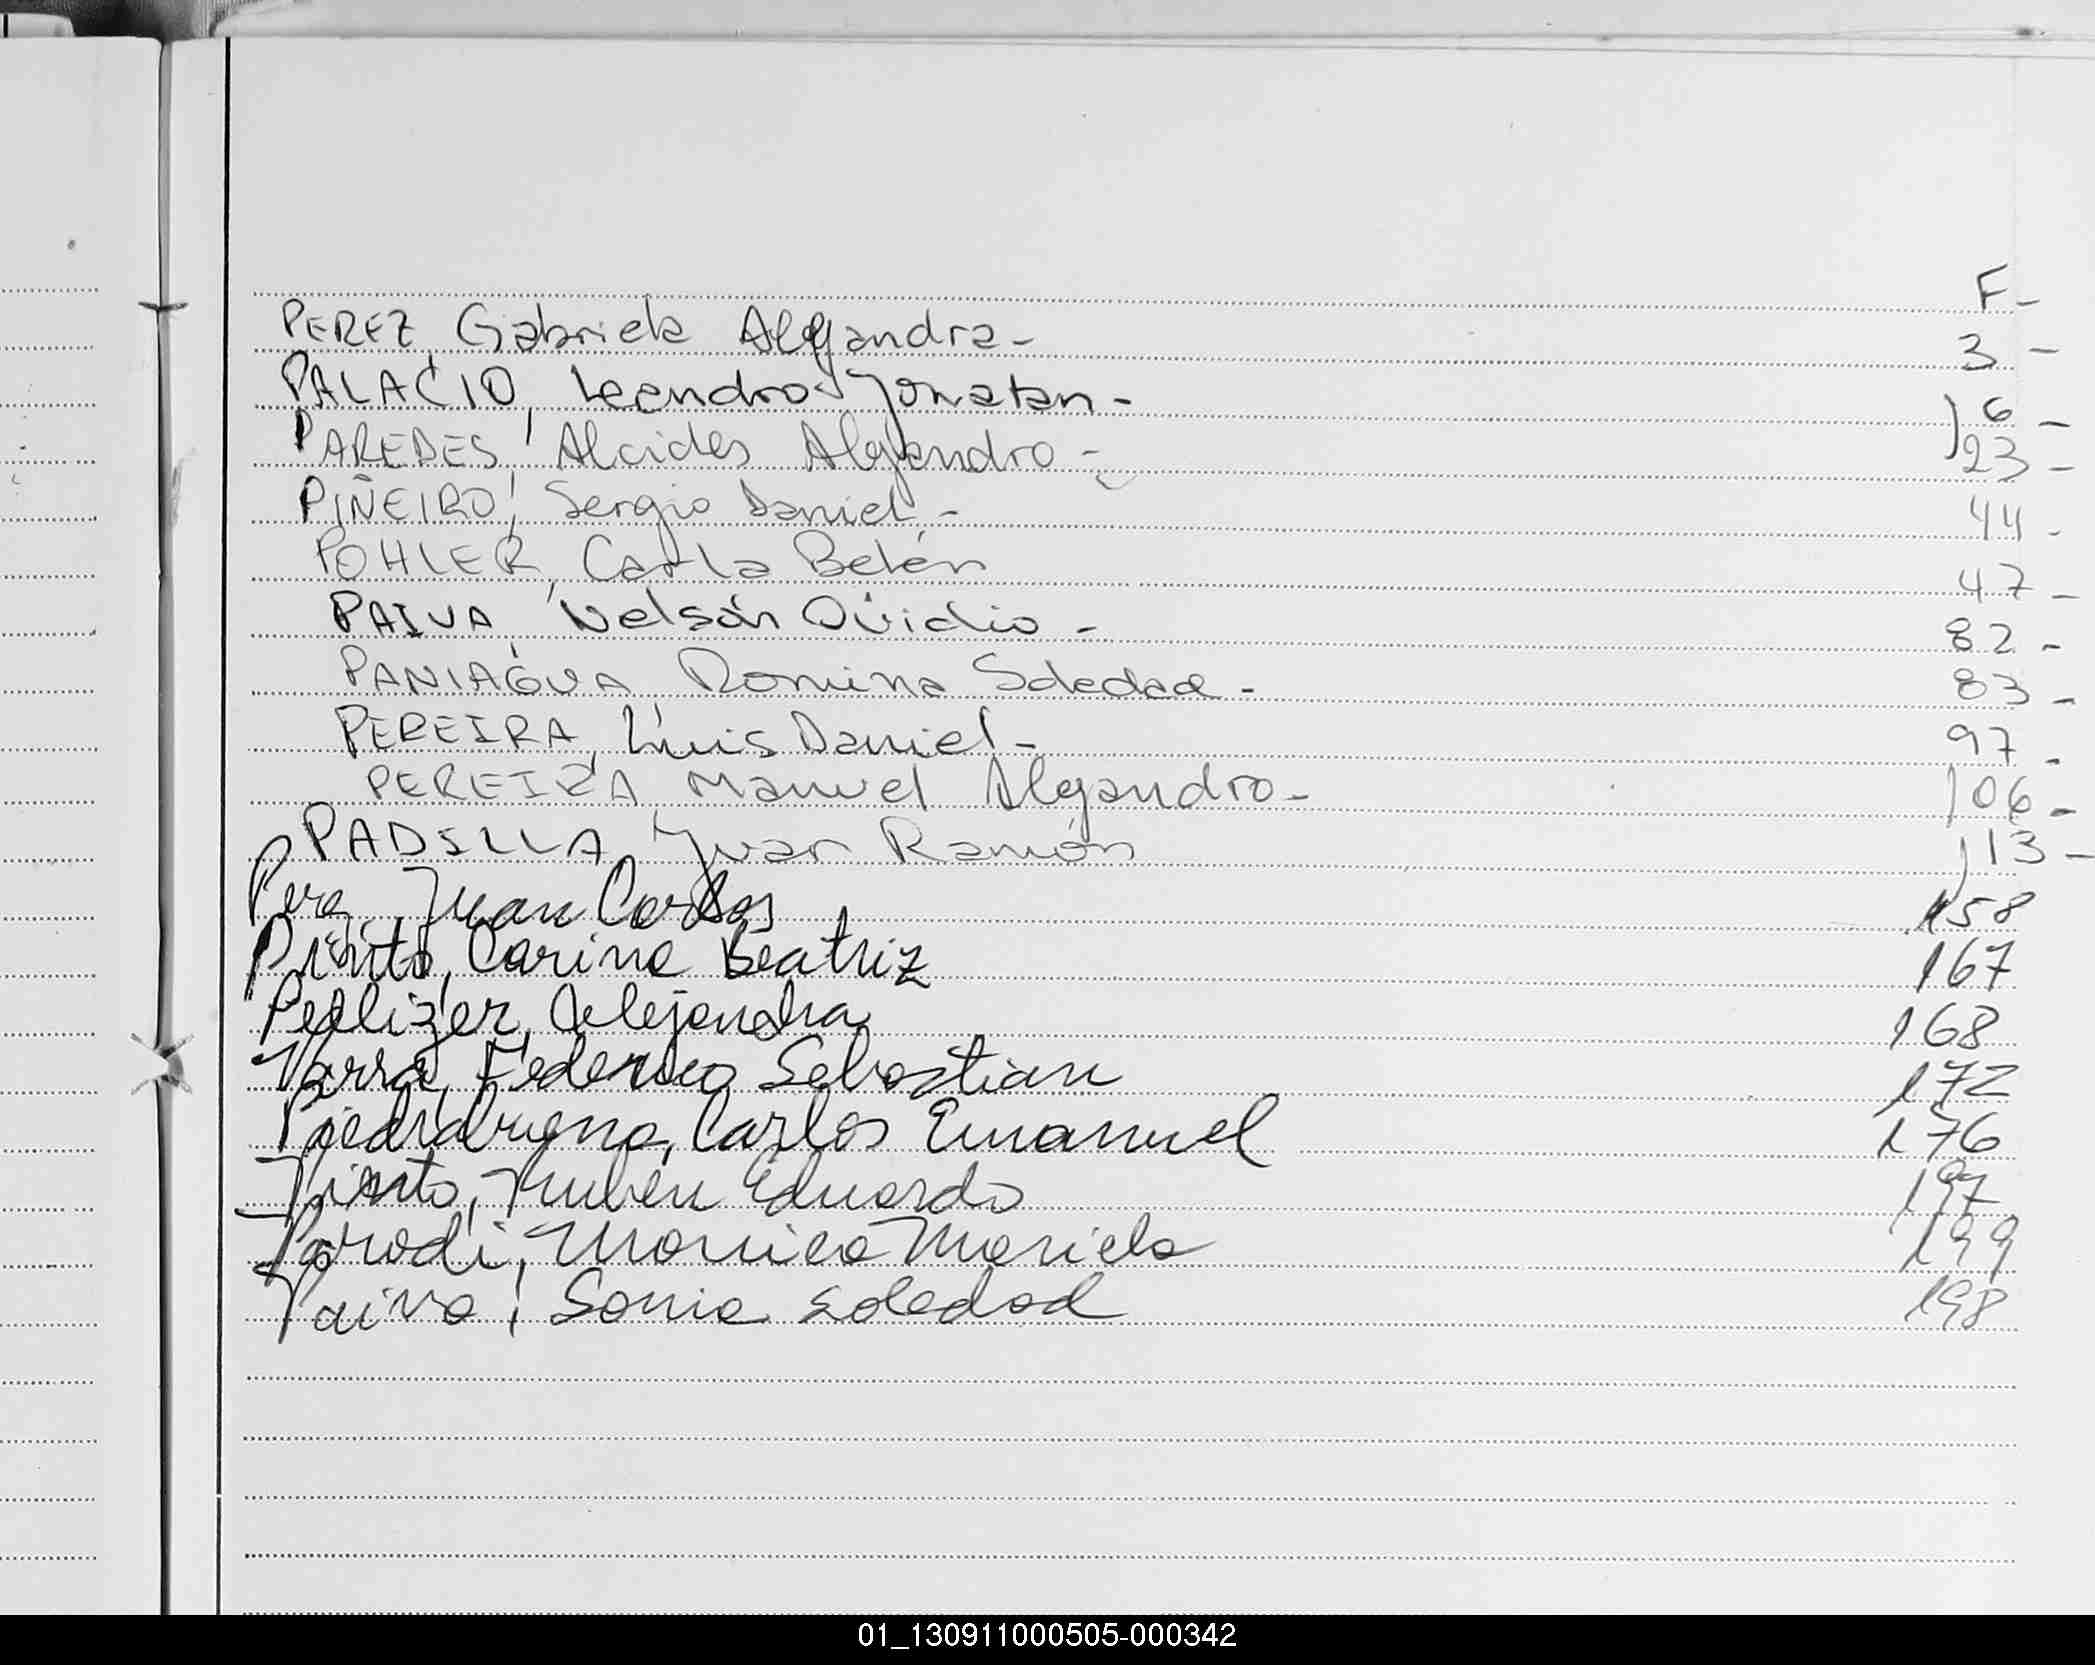 F-
PEREZ, Gabriela Alejandra- 3-
PALACIO, Leandro Jonatan- 16-
PAREDES, Alcides Alejandro- 23-
PIÑEIRO, Sergio Daniel- 44-
POHLER, Carla Belén 47-
PAIVA, Nelson Ovidio- 82-
PANIAGUA, Romina Soledad- 83-
PEREIRA, Luis Daniel- 97-
PEREIRA Manuel Alejandro- 106-
PADILLA, Juan Ramón 113-
Perez, Juan Carlos 158
Pinto, Carina Beatriz 167
Pellizer, Alejandra 168
Parra, Federico Sebastian 172
Piedrabuena, Carlos Emanuel 176
Pinto, Ruben Eduardo 197
Parodi, Monica Mariela 199
Paiva, Sonia Soledad 198
01_130911000505-000342